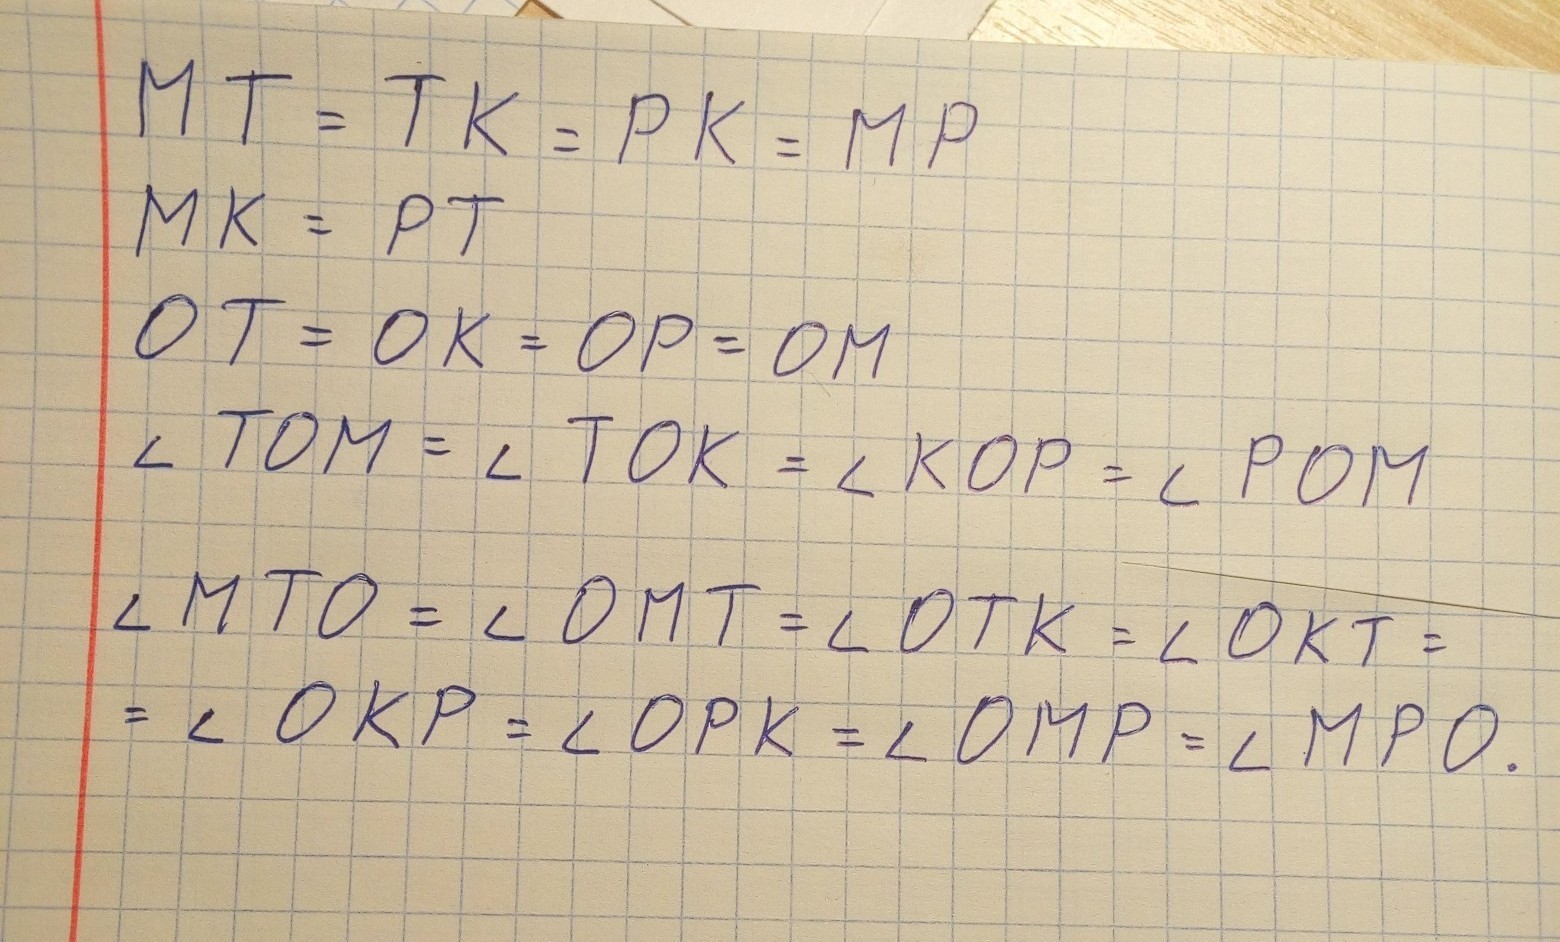 MT = TK = PK = MP
MK = PT
OT = OK = OP = OM
∠ TOM = ∠ TOK = ∠ KOP = ∠ POM
∠ MTO = ∠ OMT = ∠ OTK = ∠ OKT =
= ∠ OKP = ∠ OPK = ∠ OMP = ∠ MPO.